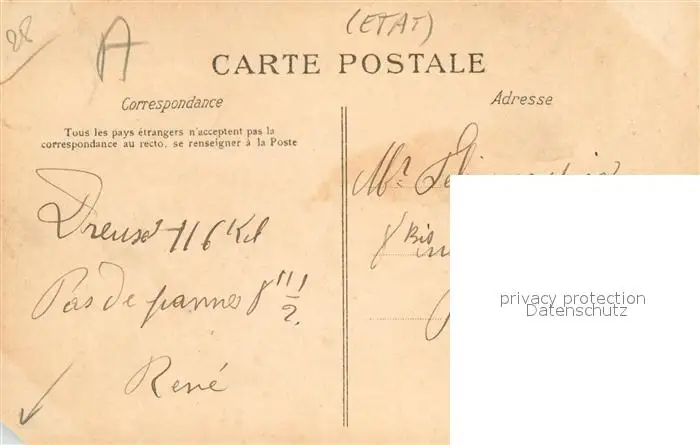 28
A
(ETAT)
CARTE POSTALE
Correspondance
Tous les pays étrangers n'acceptent pas la
correspondance au recto, se renseigner à la Poste
Dreux 116 Kil
Pas de pannes 8 ½
René
Adresse
Mr
8 Bis
privacy protection
Datenschutz